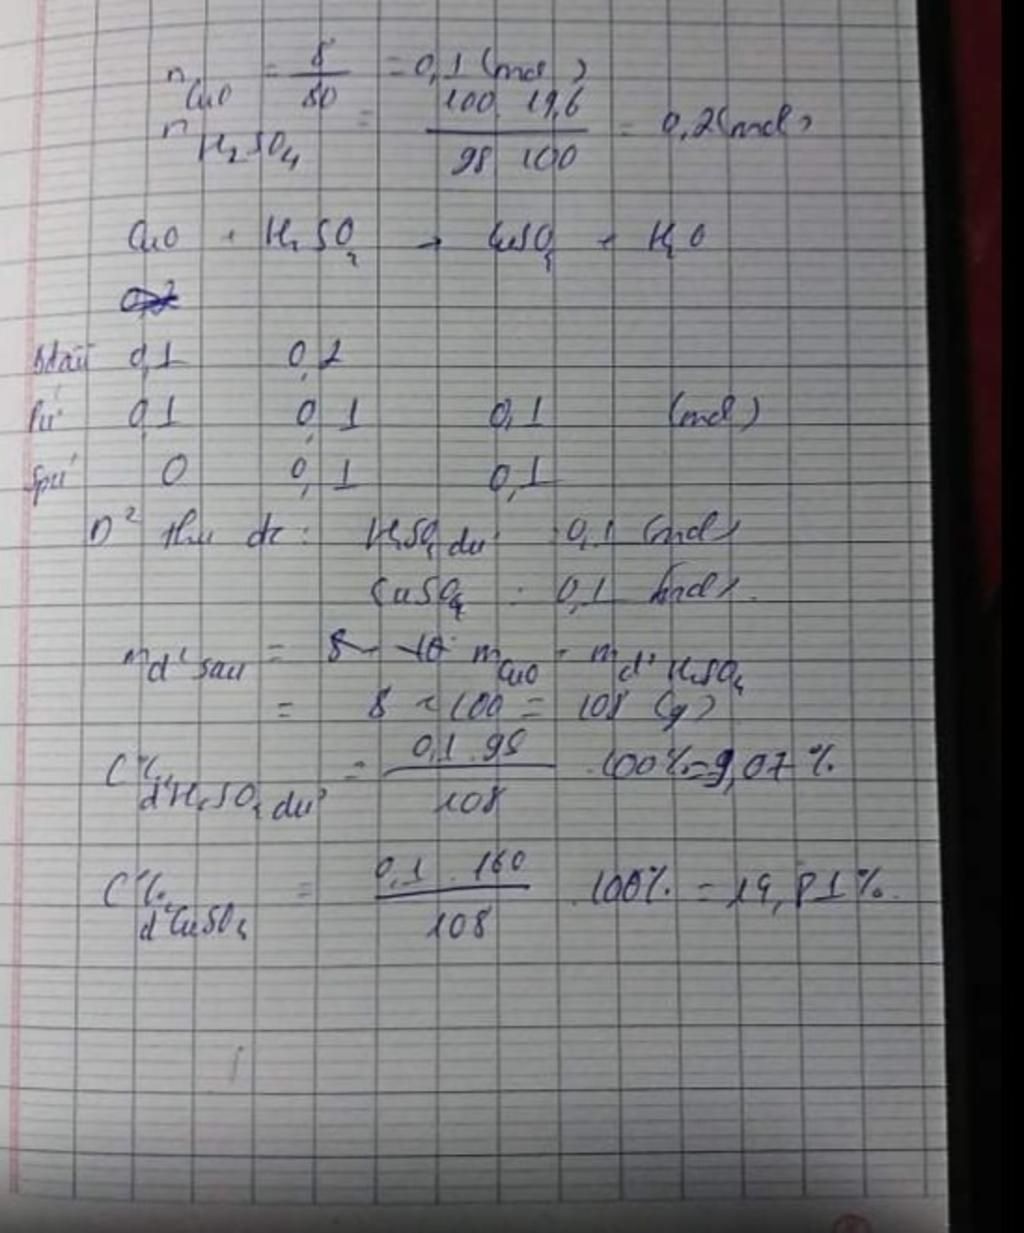 n CuO = 8/80 = 0,1 (mol)
n H2SO4 = 100.19,6/98.100 = 0,2 (mol)
CuO + H2SO4 → CuSO4 + H2O
bđầu 0,1 0,2
Pư 0,1 0,1 0,1 (mol)
Spư 0 0,1 0,1
D² thu đc: H2SO4 dư : 0,1 (mol)
CuSO4 : 0,1 (mol)
m d² sau = m CuO + m d² H2SO4
= 8 + 100 = 108 (g)
C% d² H2SO4 dư = 0,1.98/108 .100% = 9,07%
C% d² CuSO4 = 0,1.160/108 .100% = 14,81%